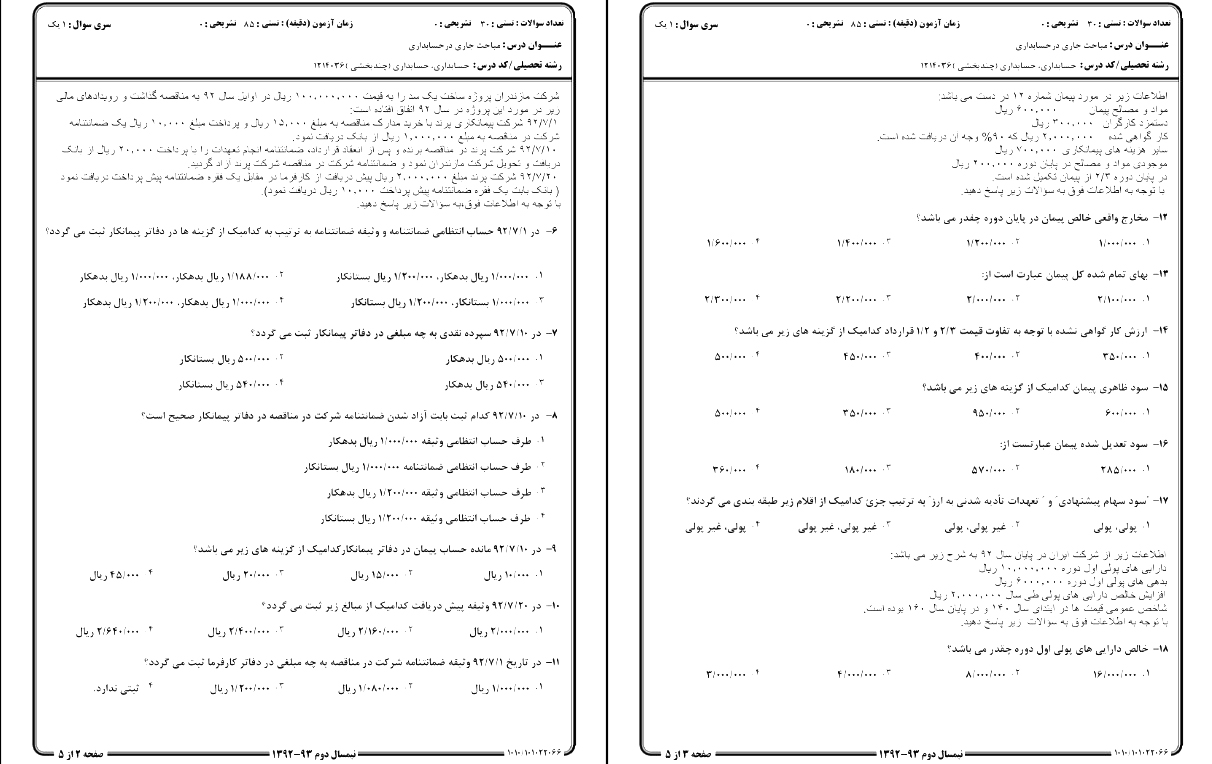 سری سوال : ۱ یک
زمان آزمون (دقیقه) : تستی : ۸۵ تشریحی : ۰
تعداد سوالات : تستی : ۳۰ تشریحی : ۰
عنـــوان درس : مباحث جاری درحسابداری
رشته تحصیلی/کد درس : حسابداری، حسابداری (چندبخشی )۱۲۱۴۰۳۶
اطلاعات زیر در مورد پیمان شماره ۱۲ در دست می باشد:
مواد و مصالح پیمان ۶۰۰,۰۰۰ ریال
دستمزد کارگران ۳۰۰,۰۰۰ ریال
کار گواهی شده ۲,۰۰۰,۰۰۰ ریال که ۹۰% وجه آن دریافت شده است.
سایر هزینه های پیمانکاری ۷۰۰,۰۰۰ ریال
موجودی مواد و مصالح در پایان دوره ۲۰۰,۰۰۰ ریال
در پایان دوره ۲/۳ از پیمان تکمیل شده است.
با توجه به اطلاعات فوق به سوالات زیر پاسخ دهید.
۱۲- مخارج واقعی خالص پیمان در پایان دوره چقدر می باشد؟
۱. ۱/۰۰۰/۰۰۰ ۲. ۱/۲۰۰/۰۰۰ ۳. ۱/۴۰۰/۰۰۰ ۴. ۱/۶۰۰/۰۰۰
۱۳- بهای تمام شده کل پیمان عبارت است از:
۱. ۲/۱۰۰/۰۰۰ ۲. ۲/۰۰۰/۰۰۰ ۳. ۲/۲۰۰/۰۰۰ ۴. ۲/۳۰۰/۰۰۰
۱۴- ارزش کار گواهی نشده با توجه به تفاوت قیمت ۲/۳ و ۱/۲ قرارداد کدامیک از گزینه های زیر می باشد؟
۱. ۳۵۰/۰۰۰ ۲. ۴۰۰/۰۰۰ ۳. ۴۵۰/۰۰۰ ۴. ۵۰۰/۰۰۰
۱۵- سود ظاهری پیمان کدامیک از گزینه های زیر می باشد؟
۱. ۶۰۰/۰۰۰ ۲. ۹۵۰/۰۰۰ ۳. ۳۵۰/۰۰۰ ۴. ۵۰۰/۰۰۰
۱۶- سود تعدیل شده پیمان عبارتست از:
۱. ۲۸۵/۰۰۰ ۲. ۵۷۰/۰۰۰ ۳. ۱۸۰/۰۰۰ ۴. ۳۶۰/۰۰۰
۱۷- "سود سهام پیشنهادی" و " تعهدات تأدیه شدنی به ارز" به ترتیب جزئ کدامیک از اقلام زیر طبقه بندی می گردند؟
۱. پولی، پولی ۲. غیر پولی، پولی ۳. غیر پولی، غیر پولی ۴. پولی، غیر پولی
اطلاعات زیر از شرکت ایران در پایان سال ۹۲ به شرح زیر می باشد:
دارایی های پولی اول دوره ۱۰,۰۰۰,۰۰۰ ریال
بدهی های پولی اول دوره ۶۰۰۰,۰۰۰ ریال
افزایش خالص دارایی های پولی طی سال ۲,۰۰۰,۰۰۰ ریال
شاخص عمومی قیمت ها در ابتدای سال ۱۴۰ و در پایان سال ۱۶۰ بوده است.
با توجه به اطلاعات فوق به سوالات زیر پاسخ دهید.
۱۸- خالص دارایی های پولی اول دوره چقدر می باشد؟
۱. ۱۶/۰۰۰/۰۰۰ ۲. ۸/۰۰۰/۰۰۰ ۳. ۴/۰۰۰/۰۰۰ ۴. ۳/۰۰۰/۰۰۰
صفحه ۳ از ۵
نیمسال دوم ۹۳-۱۳۹۲
۱۰۱۰/۱۰۱۰۲۲۰۶۶
سری سوال : ۱ یک
زمان آزمون (دقیقه) : تستی : ۸۵ تشریحی : ۰
تعداد سوالات : تستی : ۳۰ تشریحی : ۰
عنـــوان درس : مباحث جاری درحسابداری
رشته تحصیلی/کد درس : حسابداری، حسابداری (چندبخشی )۱۲۱۴۰۳۶
شرکت مازندران پروژه ساخت یک سد را به قیمت ۱۰۰,۰۰۰,۰۰۰ ریال در اوایل سال ۹۲ به مناقصه گذاشت و رویدادهای مالی
زیر در مورد این پروژه در سال ۹۲ اتفاق افتاده است:
۹۲/۷/۱ شرکت پیمانکاری پرند با خرید مدارک مناقصه به مبلغ ۱۵,۰۰۰ ریال و پرداخت مبلغ ۱۰,۰۰۰ ریال یک ضمانتنامه
شرکت در مناقصه به مبلغ ۱,۰۰۰,۰۰۰ ریال از بانک دریافت نمود.
۹۲/۷/۱۰ شرکت پرند در مناقصه برنده و پس از انعقاد قرارداد، ضمانتنامه انجام تعهدات را با پرداخت ۲۰,۰۰۰ ریال از بانک
دریافت و تحویل شرکت مازندران نمود و ضمانتنامه شرکت در مناقصه شرکت پرند آزاد گردید.
۹۲/۷/۲۰ شرکت پرند مبلغ ۲,۰۰۰,۰۰۰ ریال پیش دریافت از کارفرما در مقابل یک فقره ضمانتنامه پیش پرداخت دریافت نمود
( بانک بابت یک فقره ضمانتنامه پیش پرداخت ۱۰,۰۰۰ ریال دریافت نمود).
با توجه به اطلاعات فوق،به سوالات زیر پاسخ دهید.
۶- در ۹۲/۷/۱ حساب انتظامی ضمانتنامه و وثیقه ضمانتنامه به ترتیب به کدامیک از گزینه ها در دفاتر پیمانکار ثبت می گردد؟
۱. ۱/۰۰۰/۰۰۰ ریال بدهکار، ۱/۲۰۰/۰۰۰ ریال بستانکار ۲. ۱/۱۸۸/۰۰۰ ریال بدهکار، ۱/۰۰۰/۰۰۰ ریال بدهکار
۳. ۱/۰۰۰/۰۰۰ بستانکار، ۱/۲۰۰/۰۰۰ ریال بستانکار ۴. ۱/۰۰۰/۰۰۰ ریال بدهکار، ۱/۲۰۰/۰۰۰ ریال بدهکار
۷- در ۹۲/۷/۱۰ سپرده نقدی به چه مبلغی در دفاتر پیمانکار ثبت می گردد؟
۱. ۵۰۰/۰۰۰ ریال بدهکار ۲. ۵۰۰/۰۰۰ ریال بستانکار
۳. ۵۴۰/۰۰۰ ریال بدهکار ۴. ۵۴۰/۰۰۰ ریال بستانکار
۸- در ۹۲/۷/۱۰ کدام ثبت بابت آزاد شدن ضمانتنامه شرکت در مناقصه در دفاتر پیمانکار صحیح است؟
۱. طرف حساب انتظامی وثیقه ۱/۰۰۰/۰۰۰ ریال بدهکار
۲. طرف حساب انتظامی ضمانتنامه ۱/۰۰۰/۰۰۰ ریال بستانکار
۳. طرف حساب انتظامی وثیقه ۱/۲۰۰/۰۰۰ ریال بدهکار
۴. طرف حساب انتظامی وثیقه ۱/۲۰۰/۰۰۰ ریال بستانکار
۹- در ۹۲/۷/۱۰ مانده حساب پیمان در دفاتر پیمانکارکدامیک از گزینه های زیر می باشد؟
۱. ۱۰/۰۰۰ ریال ۲. ۱۵/۰۰۰ ریال ۳. ۲۰/۰۰۰ ریال ۴. ۴۵/۰۰۰ ریال
۱۰- در ۹۲/۷/۲۰ وثیقه پیش دریافت کدامیک از مبالغ زیر ثبت می گردد؟
۱. ۲/۰۰۰/۰۰۰ ریال ۲. ۲/۱۶۰/۰۰۰ ریال ۳. ۲/۴۰۰/۰۰۰ ریال ۴. ۲/۶۴۰/۰۰۰ ریال
۱۱- در تاریخ ۹۲/۷/۱ وثیقه ضمانتنامه شرکت در مناقصه به چه مبلغی در دفاتر کارفرما ثبت می گردد؟
۱. ۱/۰۰۰/۰۰۰ ریال ۲. ۱/۰۸۰/۰۰۰ ریال ۳. ۱/۲۰۰/۰۰۰ ریال ۴. ثبتی ندارد.
صفحه ۲ از ۵
نیمسال دوم ۹۳-۱۳۹۲
۱۰۱۰/۱۰۱۰۲۲۰۶۶